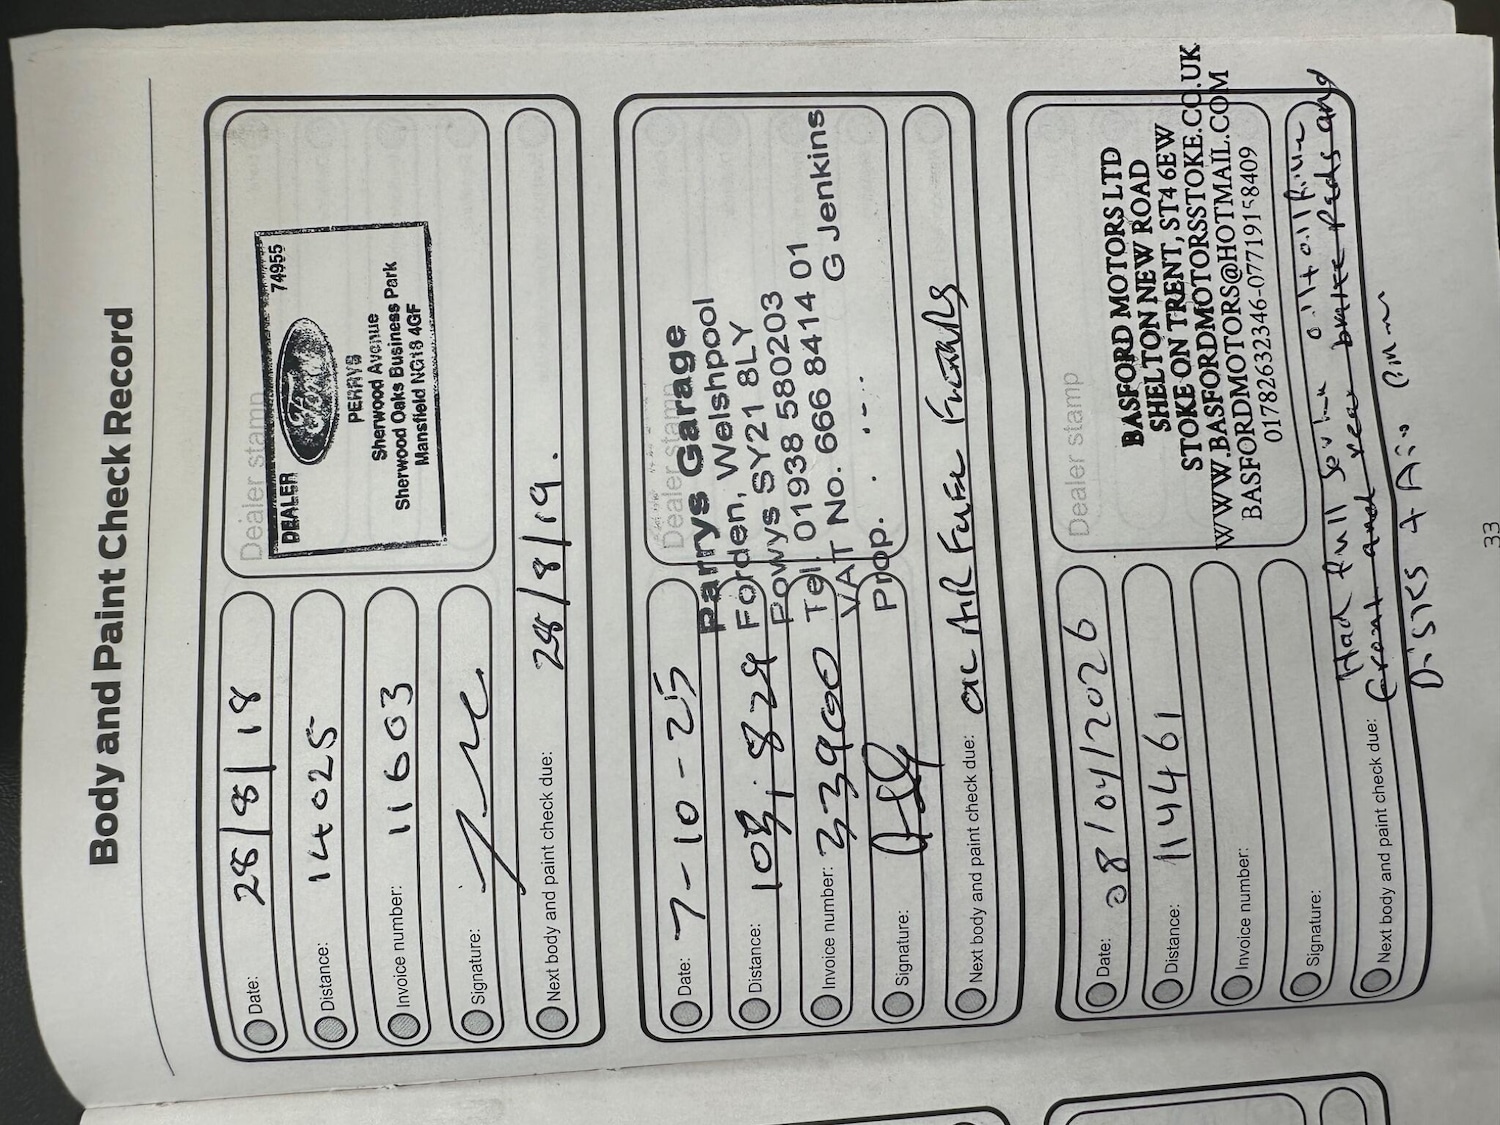 Body and Paint Check Record
Date: 28/8/18
Distance: 14025
Invoice number: 11603
Signature:
Next body and paint check due: 28/8/19.
Dealer stamp
DEALER 74955
Ford
PERRYS
Sherwood Avenue
Sherwood Oaks Business Park
Mansfield NG18 4GF
Date: 7-10-25
Distance: 829
Invoice number: 33900
Signature:
Next body and paint check due: AIR
Dealer stamp
Parrys Garage
Forden, Welshpool
Powys SY21 8LY
Tel. 01938 580203
VAT No. 666 8414 01
Prop. G Jenkins
Date: 08/04/2026
Distance: 114461
Invoice number:
Signature:
Next body and paint check due:
Dealer stamp
BASFORD MOTORS LTD
SHELTON NEW ROAD
STOKE ON TRENT, ST4 6EW
WWW.BASFORDMOTORSSTOKE.CO.UK
BASFORDMOTORS@HOTMAIL.COM
01782632346-07719158409
Had full oil + oil filter
front and rear brake pads and
Disks + Air
33